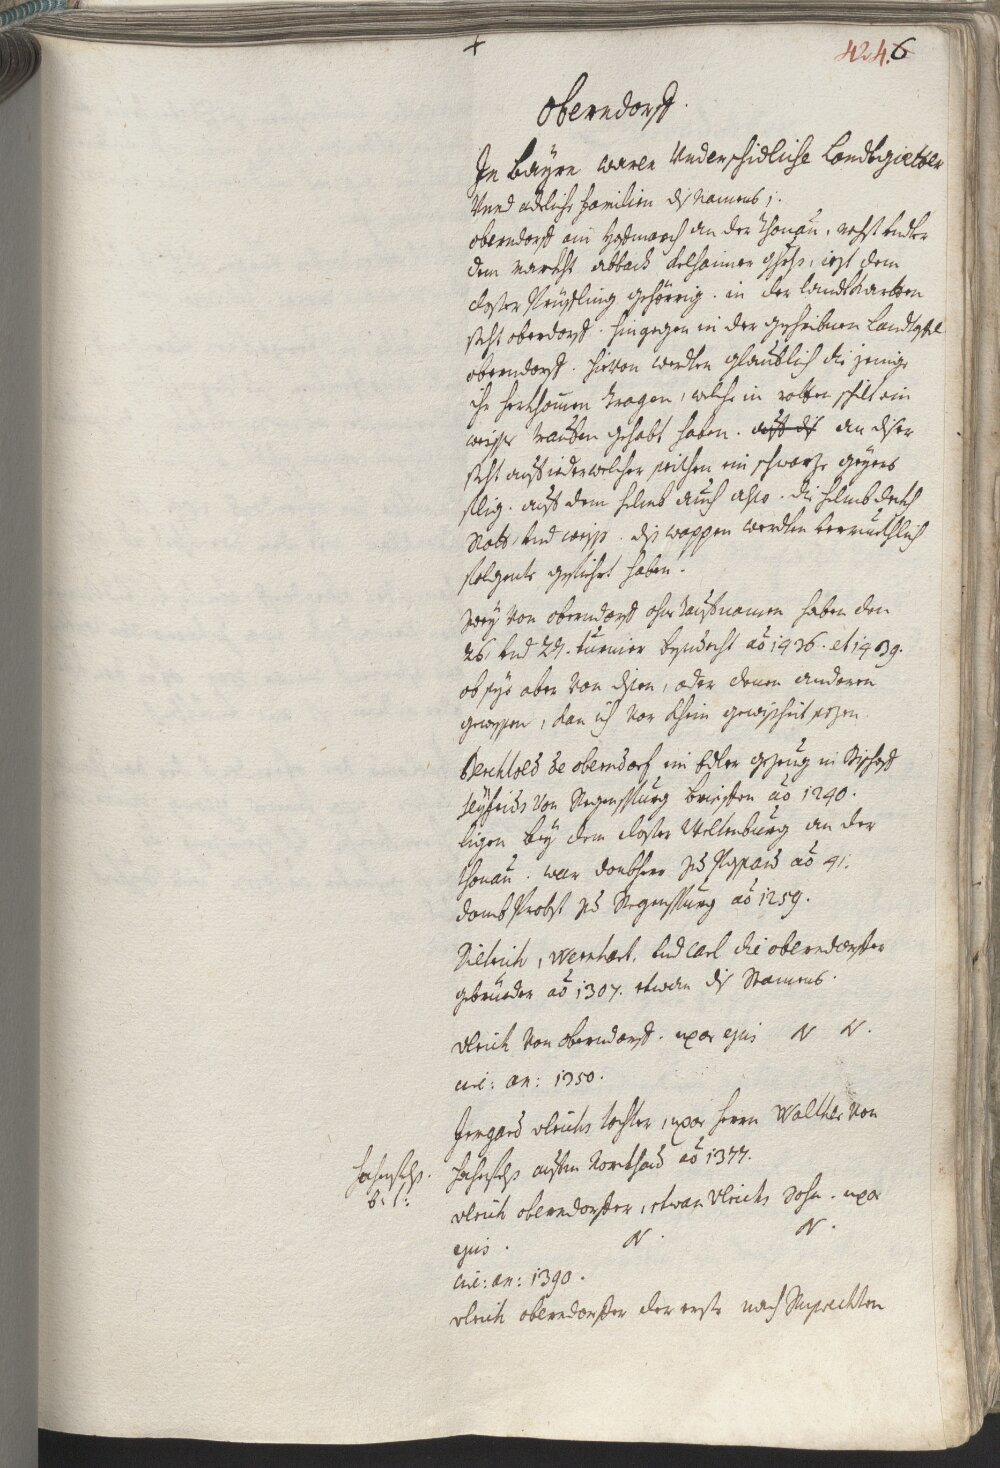 +
424.6
Oberndorff.
In Bayrn waren Underschidliche Landtgietter
Unnd adeliche familien diß Namens;.
oberndorff ain Hofmarch an der Thonau, nechst under
dem Marckht abbach kelhaimer gerichts, iezt dem
closter Prüfling gehörig. in der landtkartten
steht oberdorff. hingegen in der geschribnen landtaffel
oberndorff. hievon werden glaublich die jenige
ihr herkhomen tragen, welche in rotten schilt ein
weisse trauben gehabt haben. auf diß an diser
steht auf iedtwelcher seithen ein schwarze geyers
flig. auf dem helmb auch also. die helmbdeckh
Rott, und weiß. diß wappen werden vermuethlich
folgente geführt haben.
Zwey von oberndorff ohne Taufnamen haben den
26. und 27. turnier besuecht aõ 1436. et 1439.
ob sye aber von disen, oder denen anderen
gewesen, kan ich vor khein gewißheit sezen.
Berchtold de oberndorf ein Edler gezeug in Bischoff
seyfrids von Regenspurg brieffen aõ 1240.
ligen bey dem closter Weltenburg an der
thonau. war dombherr zu Passau aõ 41.
domb Probst zu Regenspurg aõ 1259.
Dietrich, Wernhart, und carl die oberndorffer
gebrüeder aõ 1307. etwan diß Stamens.
Ulrich von oberndorff. uxor ejus N N.
circ: an: 1350.
Irmgard ulrichs tochter, uxor herrn Walther von
hahnfelß.
b. 1:
hahnfelß außm Nordthaid aõ 1377.
Ulrich oberndorffer, etwan Ulrichs Sohn. uxor
ejus. N. N.
circ: an: 1390.
Ulrich oberndorffer der erste nach Ruprechten